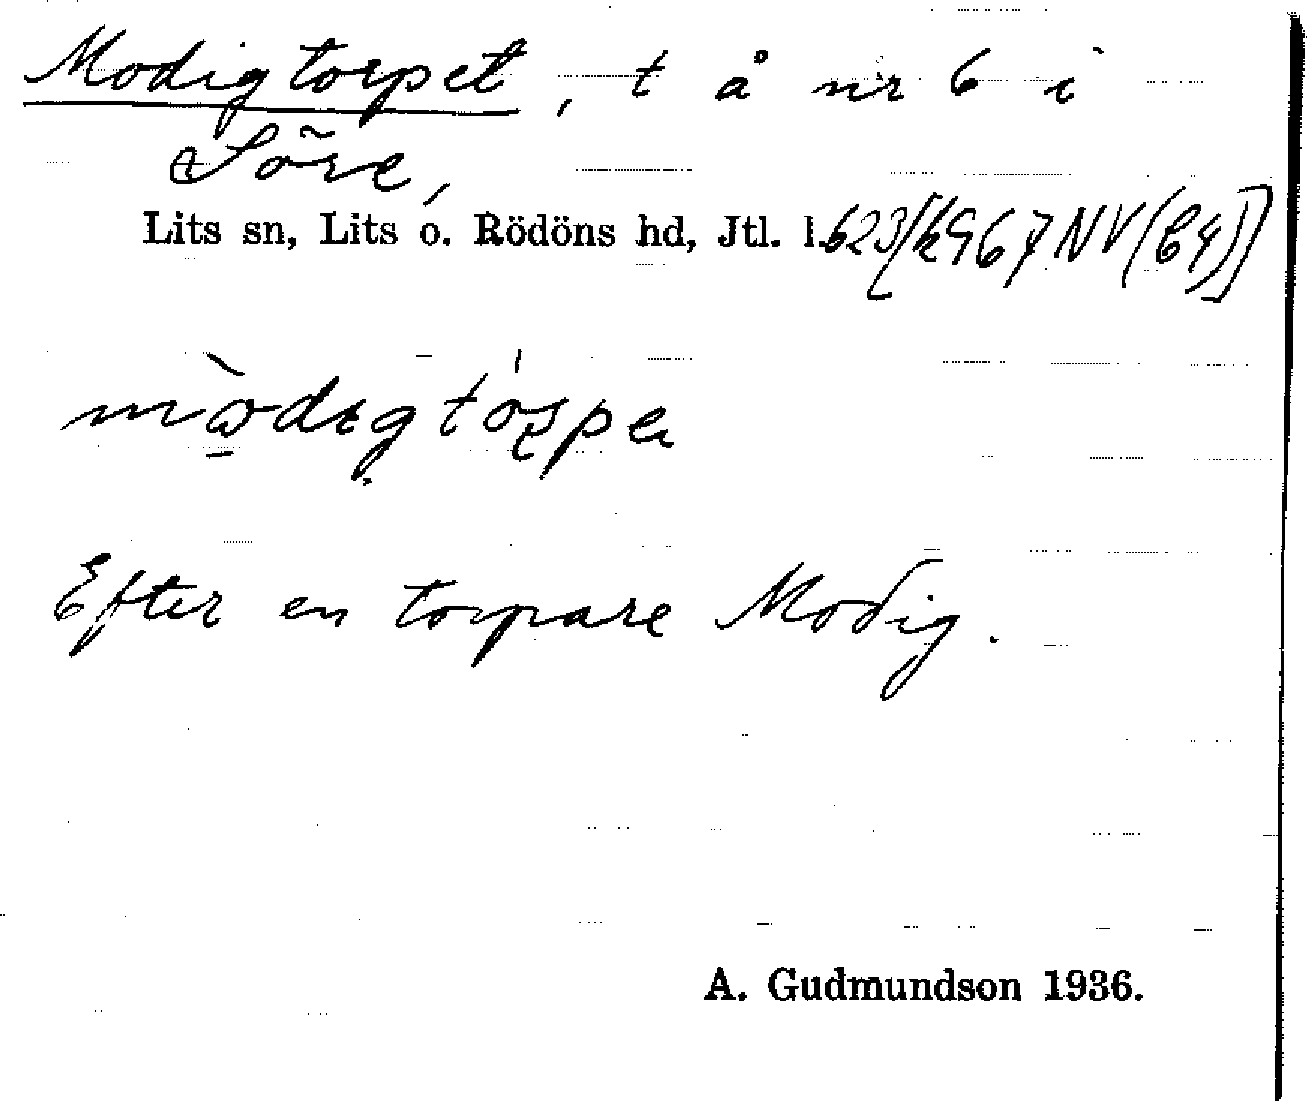 Modigtorpet, t å nr 6 i
Söre,
Lits sn, Lits o. Rödöns hd, Jtl. l. 623/[k967NV(C4)]
Efter en torpare Modig.
A. Gudmundson 1936.